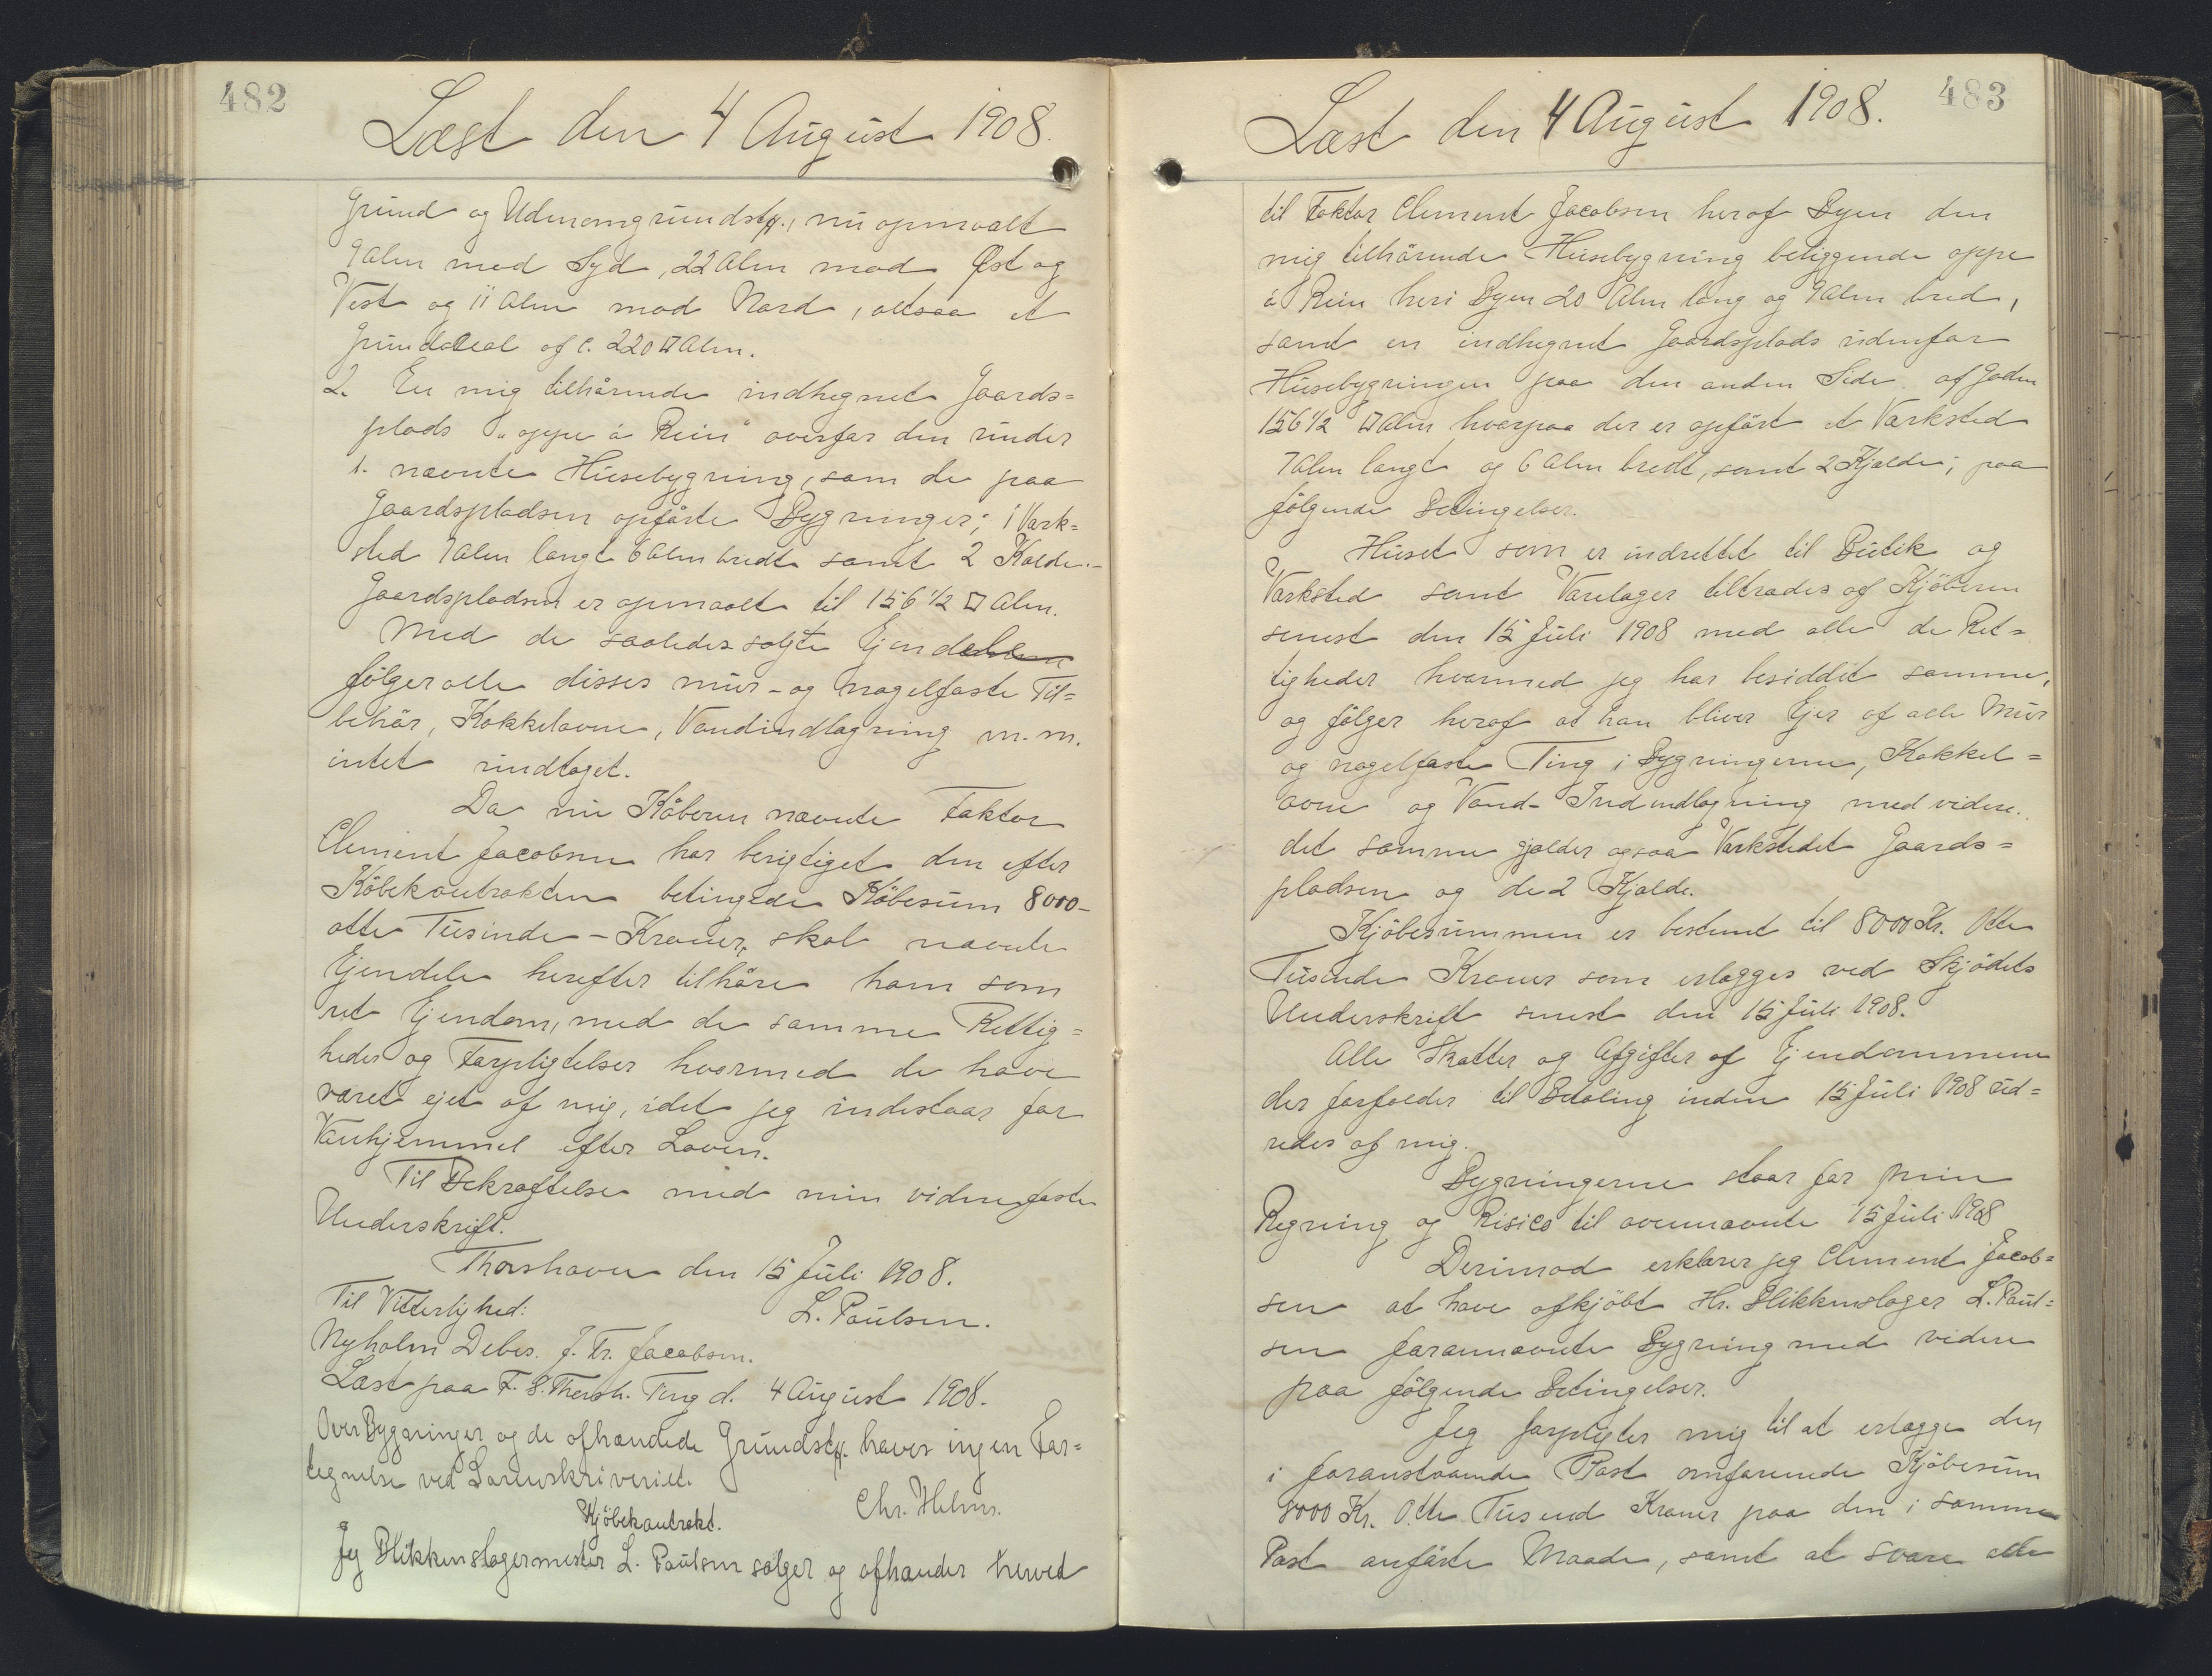 482
Læst den 4 August 1908.
Grund og Udenomgrundstk., nu opmaalt
9 Alen mod Syd, 22 Alen mod Øst og
Vest og 11 Alen mod Nord, altsaa et
Grundareal af c. 220 □ Alen.
2. En mig tilhørende indhegnet Gaards=
plads "oppe á Rein" overfor den under
1. nævnte Husebygning, som de paa
Gaardspladsen opførte Bygninger; 1 Værk=
sted 7 Alen langt 6 Alen bredt samt 2 Kælde.-
Gaardspladsen er opmaalt til 156 1/2 □ Alen.
Med de saaledes solgte Ejendele
følger alle disses mur- og nagelfaste Til=
behør, Kakkelovne, Vandindlægning m.m.
intet undtaget.
Da nu Køberen nævnte Faktor
Clement Jacobsen har berigtiget den efter
Købekontrakten betingede Købesum 8000-
otte Tusinde - Kroner, skal nævnte
Ejendele herefter tilhøre ham som
ret Ejendom, med de samme Rettig=
heder og Forpligtelser hvormed de have
været ejet af mig, idet jeg indestaar for
Vanhjemmel efter Loven.
Til Bekræftelse med min vidnefaste
Underskrift.
Thorshavn den 15 Juli 1908.
Til Vitterlighed: L. Poulsen.
Nyholm Debes. J. Fr. Jacobsen.
Læst paa F. S. Thorsh. Ting d. 4 August 1908.
Over Bygninger og de afhændede Grundstk. haves ingen For=
tegnelse ved Sorenskriveriet.
Chr. Helms.
Kjöbekontrakt.
Jeg Blikkenslagermester L. Poulsen sælger og afhænder herved
483
Læst den 4 August 1908.
til Faktor Clement Jacobsen heraf Byen den
mig tilhørende Husebygning beliggende oppe
á Rein heri Byen 20 Alen lang og 9 Alen bred,
samt en indhegnet Gaardsplads udenfor
Husebygningen paa den anden Side af Gaden
156 1/2 □ Alen hvorpaa der er opført et Værksted
7 Alen langt og 6 Alen bredt, samt 2 Kjælde; paa
følgende Betingelser.
Huset som er indrettet til Butik og
Værksted samt Varelager tiltrædes af Kjøberen
senest den 15 Juli 1908 med alle de Ret=
tigheder hvormed jeg har besiddet samme,
og følger heraf at han bliver Ejer af alle Mur
og nagelfaste Ting i Bygningerne, Kakkel=
ovne og Vand- Indindlægning med videre.
det samme gjælder ogsaa Værkstedet Gaards=
pladsen og de 2 Kjælde.
Kjøbesummen er bestemt til 8000 Kr. Otte
Tusinde Kroner som erlægges ved Skjødets
Underskrift senest den 15 Juli 1908.
Alle Skatter og Afgifter af Ejendommene
der forfalder til Betaling inden 15 Juli 1908 ud=
redes af mig.
Bygningerne staar for min
Regning og Risico til ovennævnte 15 Juli 1908
Derimod erklærer jeg Clement Jacob=
sen at have afkjøbt Hr. Blikkenslager L. Poul=
sen forannævnte Bygning med videre
paa følgende Betingelser.
Jeg forpligter mig til at erlægge den
i foranstaaende Post omførmede Kjøbesum
8000 Kr. Otte Tusind Kroner paa den i samme
Post anførte Maade, samt at svare alle